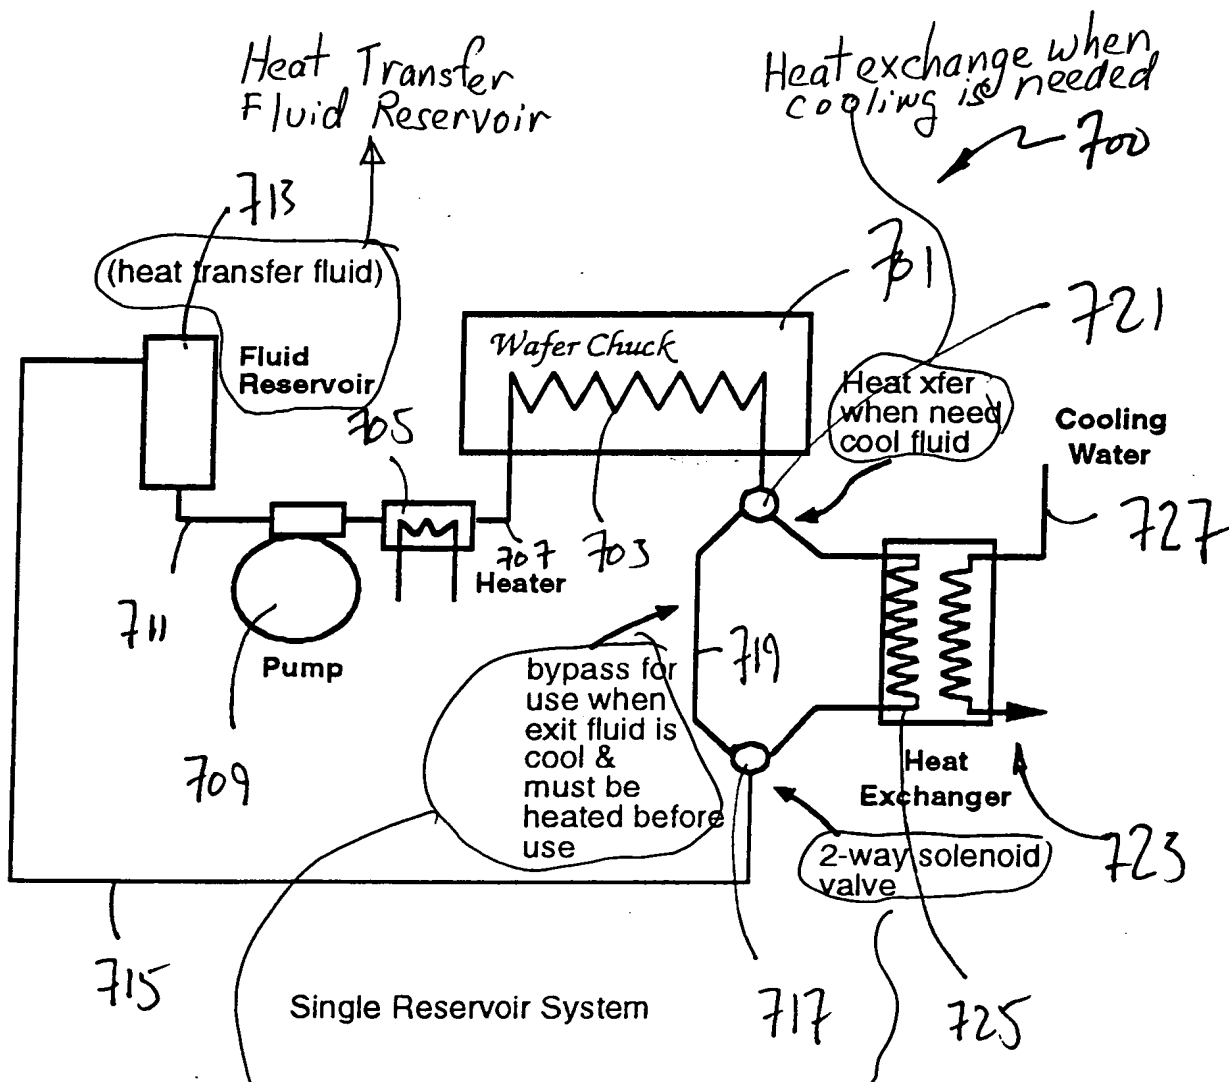 Heat Transfer
Fluid Reservoir
Heat exchange when
cooling is needed
700
713
701
(heat transfer fluid)
721
Wafer Chuck
Fluid
Reservoir
Heat xfer
when need
cool fluid
Cooling
Water
705
727
707
703
Heater
711
Pump
719
bypass for
use when
exit fluid is
cool &
must be
heated before
use
709
Heat
Exchanger
723
2-way solenoid
valve
715
Single Reservoir System
717
725